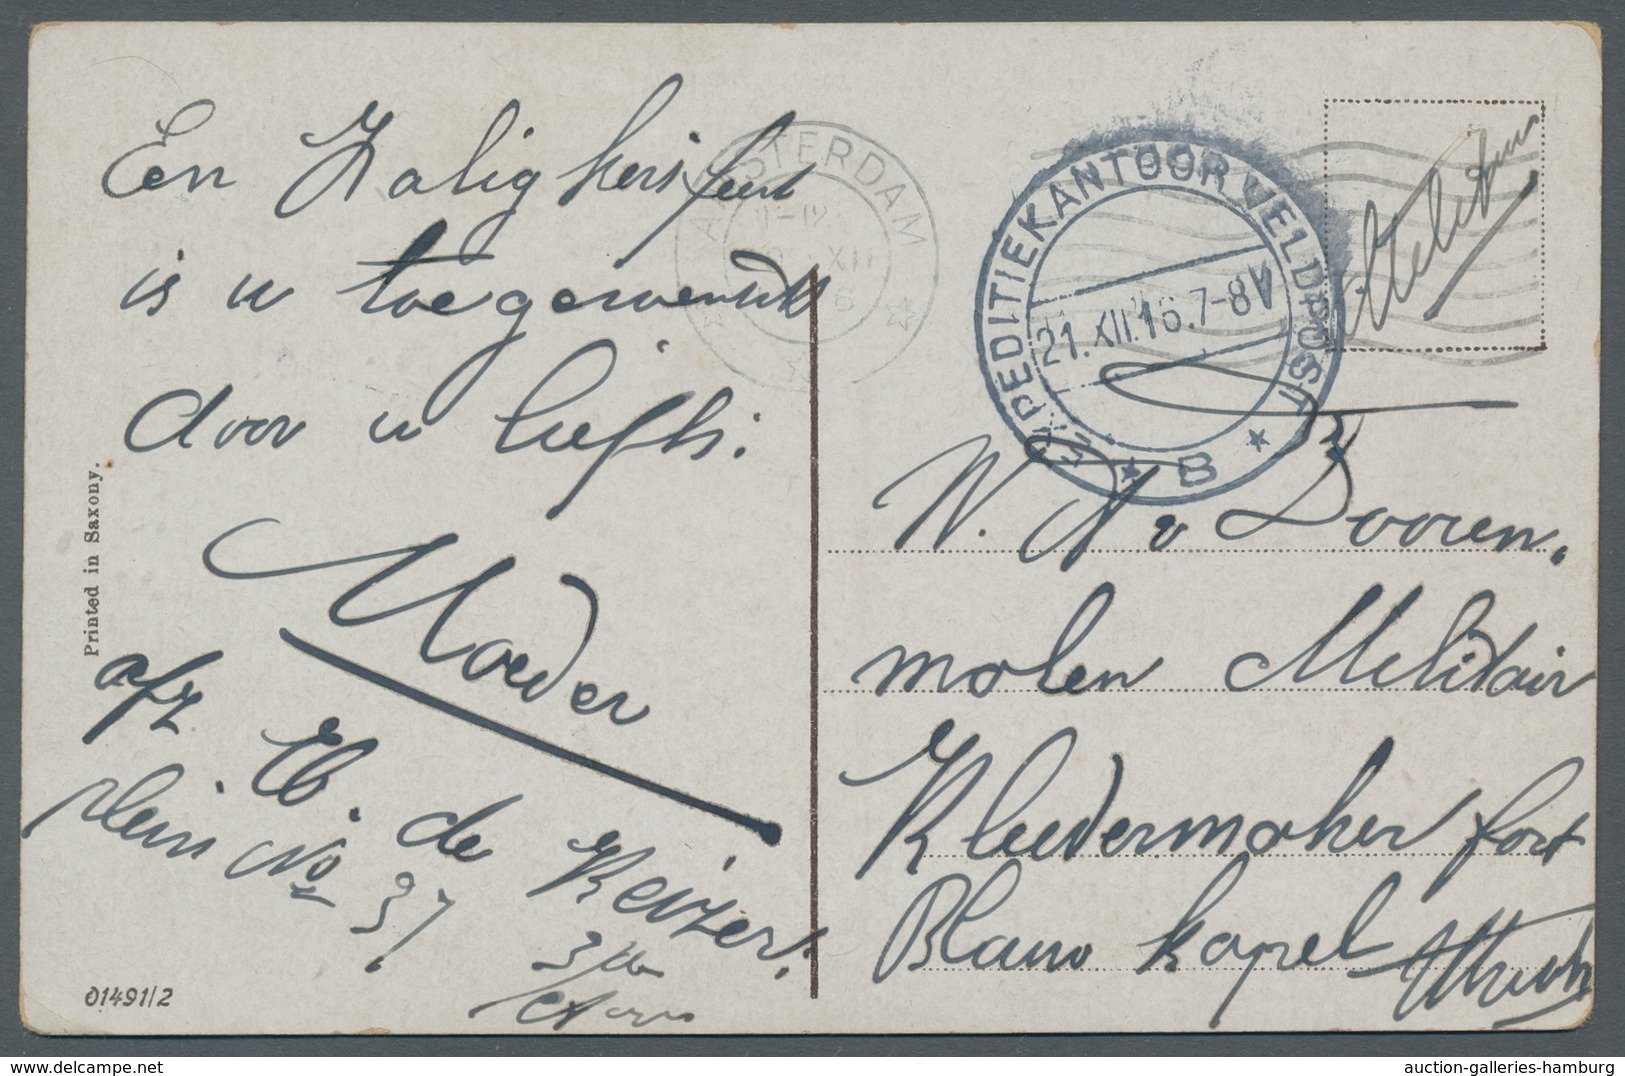 En Zalig kersfeest
is u toegewenscht
door u liefh.
Moeder
afz
Eb. de Keizer.
plein No 37
3 hr
Printed in Saxony.
01491/2
AMSTERDAM
XII
EXPEDITIEKANTOOR VELDPOST
21.XII.16.7-8V
* B *
W. N v Dooren.
molen Militair
Kleedermaker fort
Blauw kapel Utrech
auction-galleries-hamburg